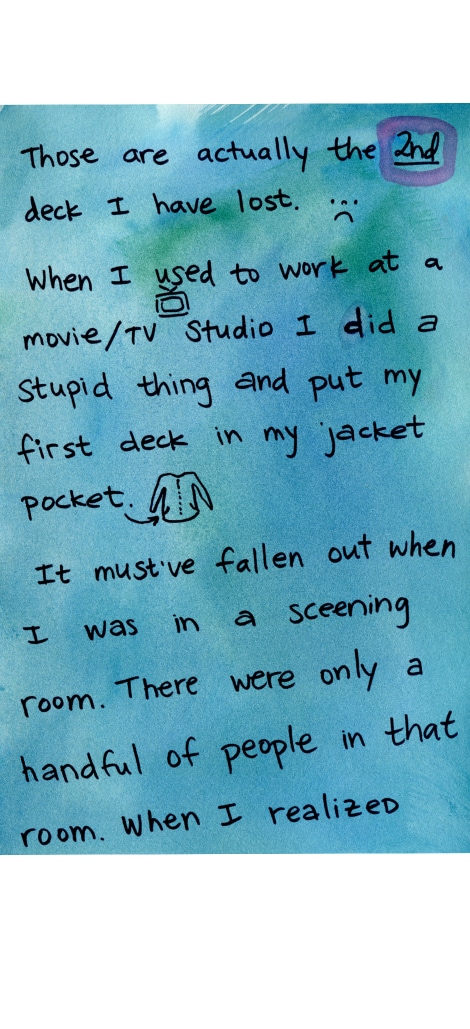 Those are actually the 2nd
deck I have lost.
When I used to work at a
movie/TV Studio I did a
stupid thing and put my
first deck in my jacket
pocket.
It must've fallen out when
I was in a sceening
room. There were only a
handful of people in that
room. When I realized